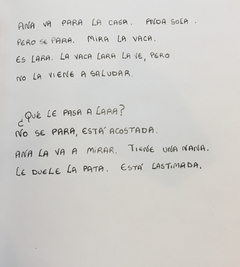 ANA VA PARA LA CASA. ANDA SOLA.
PERO SE PARA. MIRA LA VACA.
ES LARA. LA VACA LARA LA VE, PERO
NO LA VIENE A SALUDAR.
¿QUÉ LE PASA A LARA?
NO SE PARA, ESTÁ ACOSTADA.
ANA LA VA A MIRAR. TIENE UNA NANA.
LE DUELE LA PATA. ESTÁ LASTIMADA.